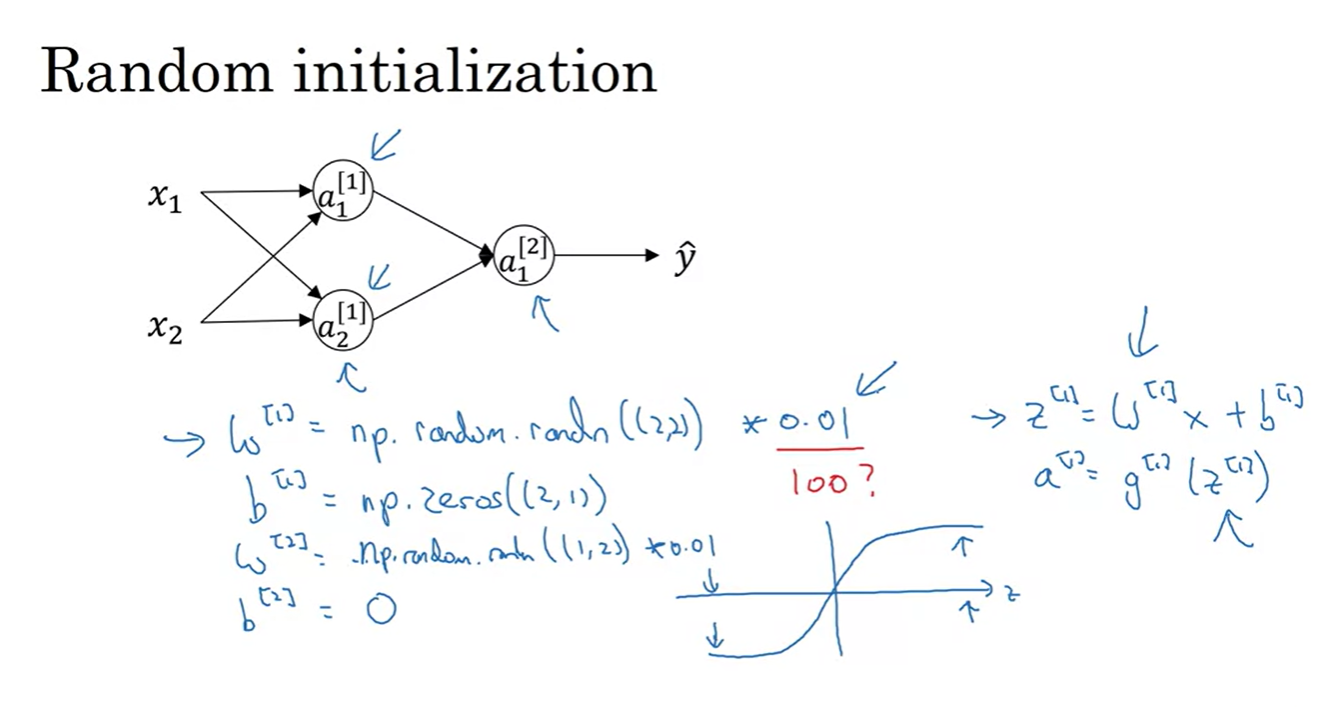 Random initialization
x₁
a₁^[1]
x₂
a₂^[1]
a₁^[2]
ŷ
→ W^[1] = np.random.randn((2,2)) * 0.01
100?
b^[1] = np.zeros((2,1))
W^[2] = np.random.randn((1,2)) * 0.01
b^[2] = 0
→ z^[1] = W^[1] x + b^[1]
a^[1] = g^[1] (z^[1])
z